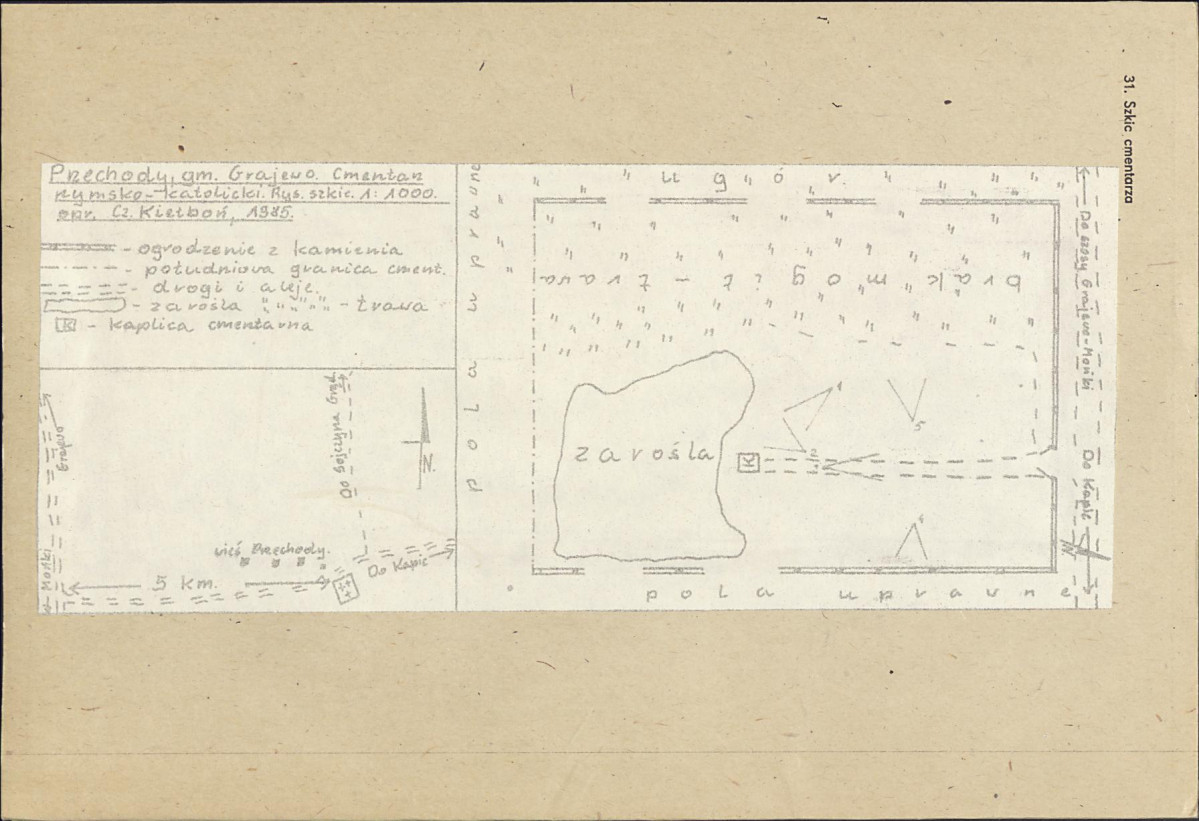 31. Szkic cmentarza
Przechody, gm. Grajewo. Cmentarz
rzymsko-katolicki. Rys. szkic. 1:1000.
opr. Cz. Kiełboń, 1985.
- ogrodzenie z kamienia
- południowa granica cment.
- drogi i aleje.
- zarośla - trawa
K - kaplica cmentarna
Grajewo
Mońki
Do Sojczyna Grąd.
N.
wieś Przechody.
5 km.
Do Kapic
pola uprawne
ugór
brak mogił - trawa
zarośla
K
1
5
4
pola uprawne
Do szosy Grajewo-Mońki
Do Kapic
N